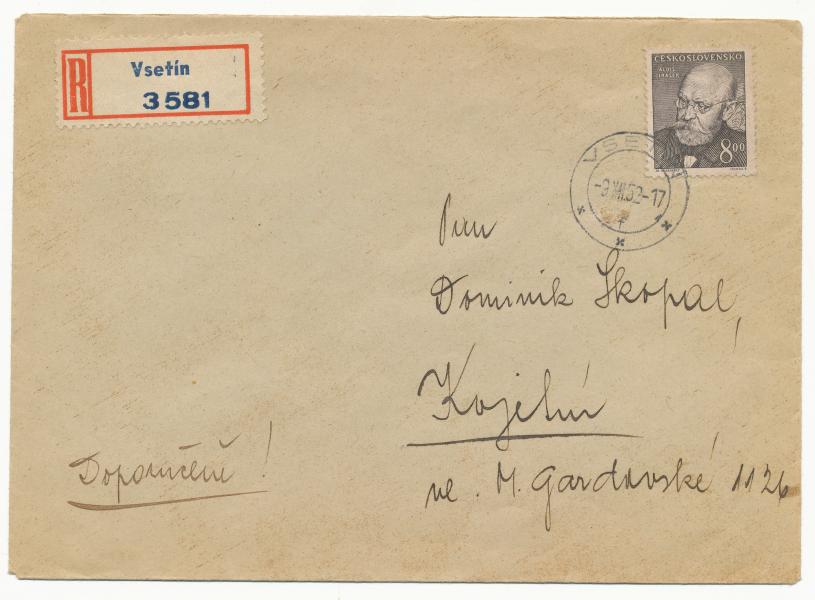 R
Vsetín
3581
ČESKOSLOVENSKO
ALOIS
JIRÁSEK
8 00
VSETÍN
-9.XII.52-17
Pan
Dominik Skopal,
Kojetín
ul. M. Gardavské 1126
Doporučeně!